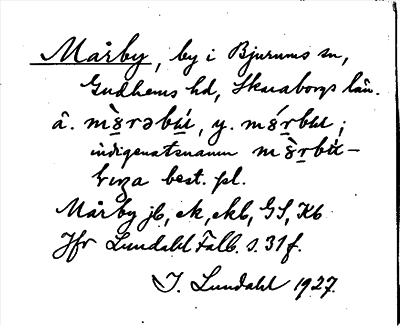 Mårby, by i Bjurums sn,
Gudhems hd, Skaraborgs län.
ä. mə̀rəbɯ, y. mə́rbɯ;
indigenatsnamn mə̀rbɯ-
best. pl.
Mårby jb, ek, ekb, GS, Kb
Jfr Lundahl Falb. s. 31 f.
I. Lundahl 1927.